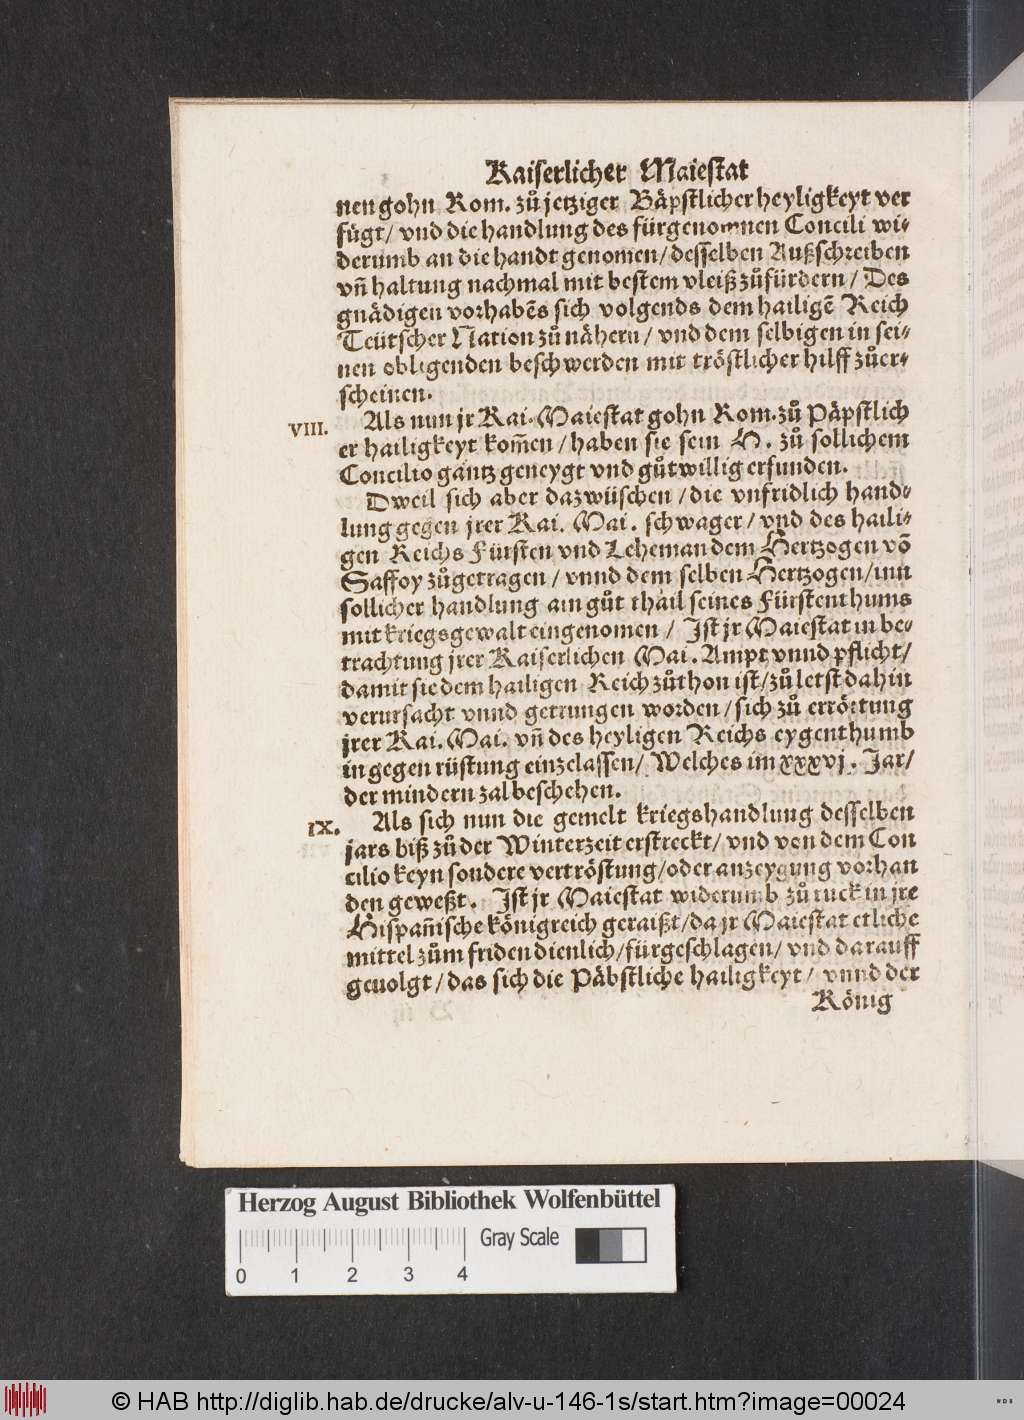 Kaiserlicher Maiestat
nen gohn Rom. zů jetziger Bäpstlicher heyligkeyt ver
fügt / vnd die handlung des fürgenomnen Concili wi-
derumb an die handt genomen / desselben Außschreiben
vñ haltung nachmal mit bestem vleiß zů fürdern / Des
gnädigen vorhabēs sich volgends dem hailigē Reich
Teütscher Nation zů nähern / vnd dem selbigen in sei-
nen obligenden beschwerden mit tröstlicher hilff zů er-
scheinen.
VIII. Als nun jr Kai. Maiestat gohn Rom. zů Päpstlich
er hailigkeyt kom̃en / haben sie sein H. zů sollichem
Concilio gäntz geneygt vnd gůtwillig erfunden.
Dweil sich aber dazwüschen / die vnfridlich hand-
lung gegen jrer Kai. Mai. schwager / vnd des haili-
gen Reichs Fürsten vnd Leheman dem Hertzogen vō
Saffoy zůgetragen / vnnd dem selben Hertzogen / inn
sollicher handlung ain gůt thail seines Fürstenthums
mit kriegsgewalt eingenomen / Ist jr Maiestat in be-
trachtung jrer Kaiserlichen Mai. Ampt vnnd pflicht /
damit sie dem hailigen Reich zůthon ist / zů letst dahin
verursacht vnnd getrungen worden / sich zů errörtung
jrer Kai. Mai. vñ des heyligen Reichs eygenthumb
in gegen rüstung einzelassen / Welches im xxxvj. Jar /
der mindern zal beschehen.
IX. Als sich nun die gemelt kriegshandlung desselben
jars biß zů der Winterzeit erstreckt / vnd von dem Con
cilio keyn sondere vertröstung / oder anzeygung vorhan
den geweßt. Ist jr Maiestat widerumb zů ruck in jre
Hispañische königreich geraißt / da jr Maiestat etliche
mittel zům friden dienlich / fürgeschlagen / vnd darauff
geuolgt / das sich die Päbstliche hailigkeyt / vnnd der
König
Herzog August Bibliothek Wolfenbüttel
Gray Scale
0 1 2 3 4
© HAB http://diglib.hab.de/drucke/alv-u-146-1s/start.htm?image=00024